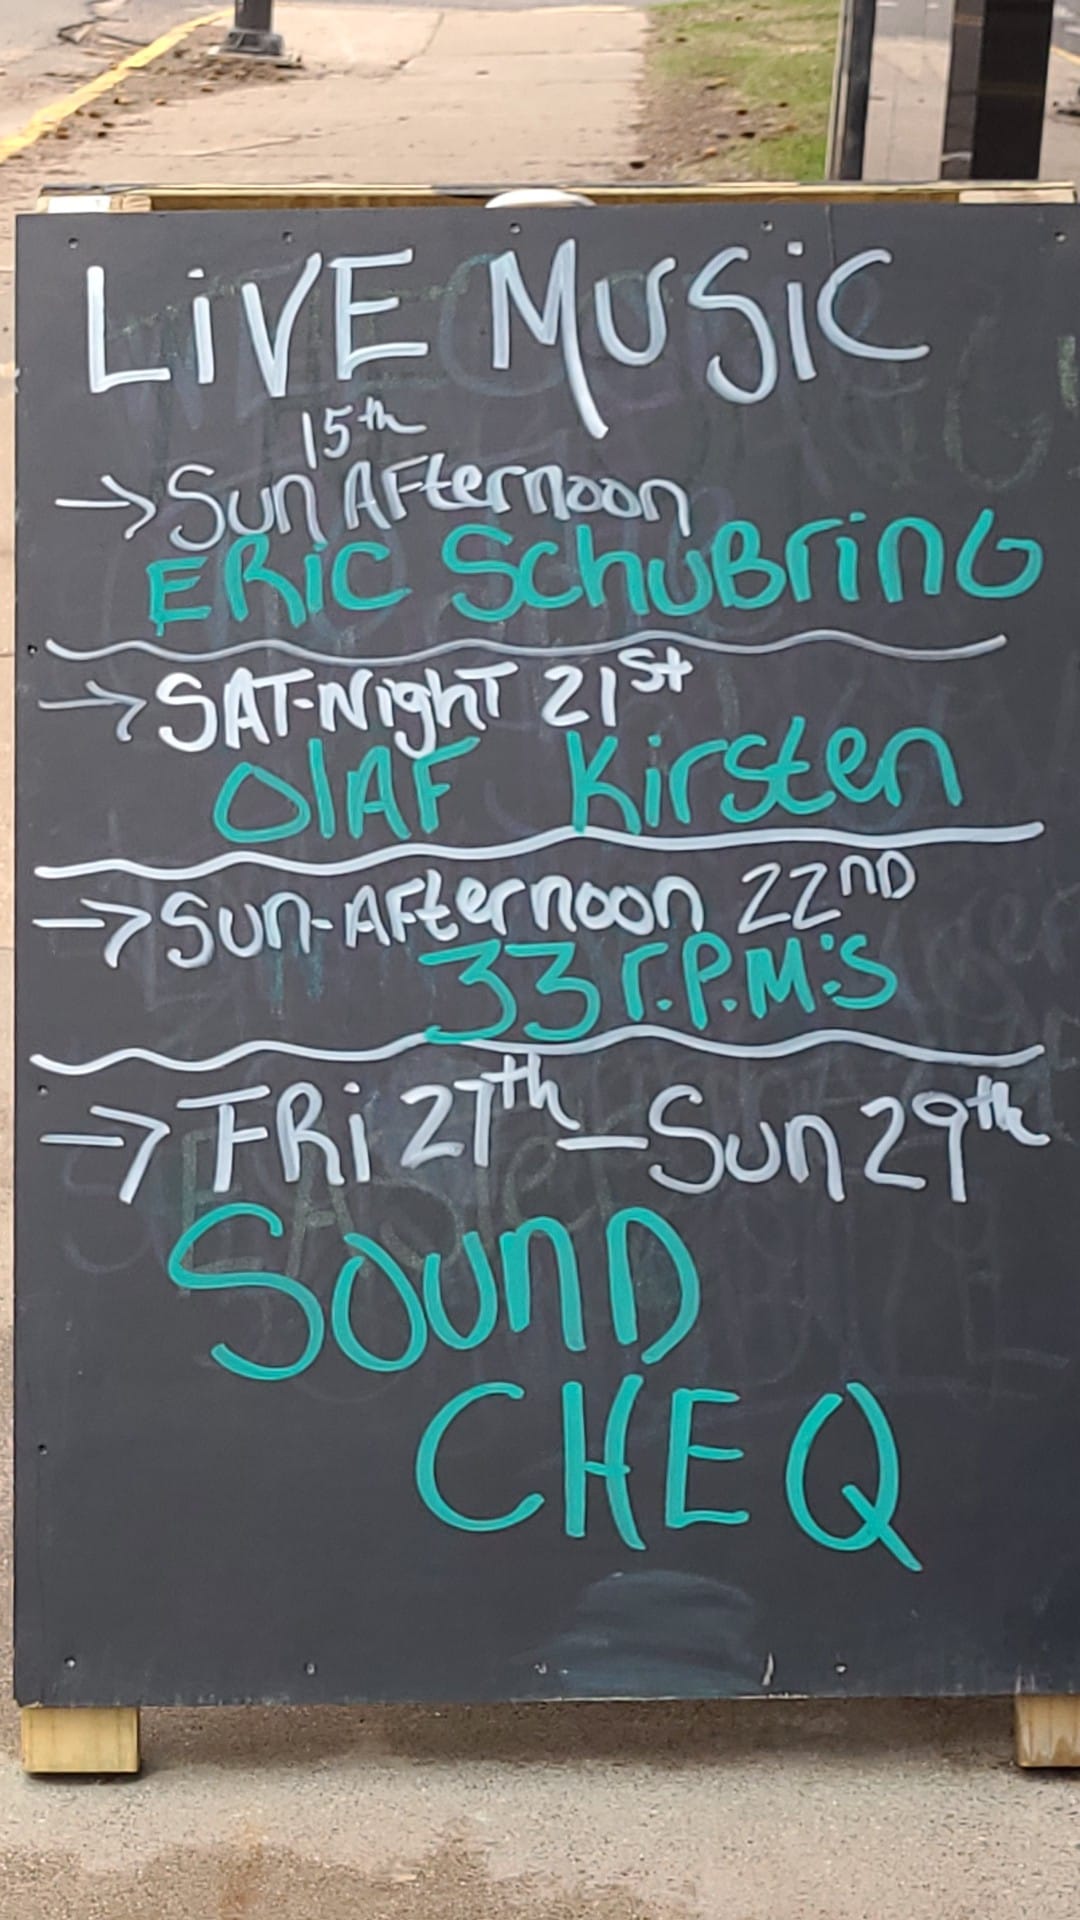 LiVE MUSiC
15th
→ Sun Afternoon
ERiC SchuBrinG
→ SAT-Night 21st
OlAF Kirsten
→ Sun-Afternoon 22ND
33 r.P.M:S
→ FRi 27th - Sun 29th
SOunD
CHEQ